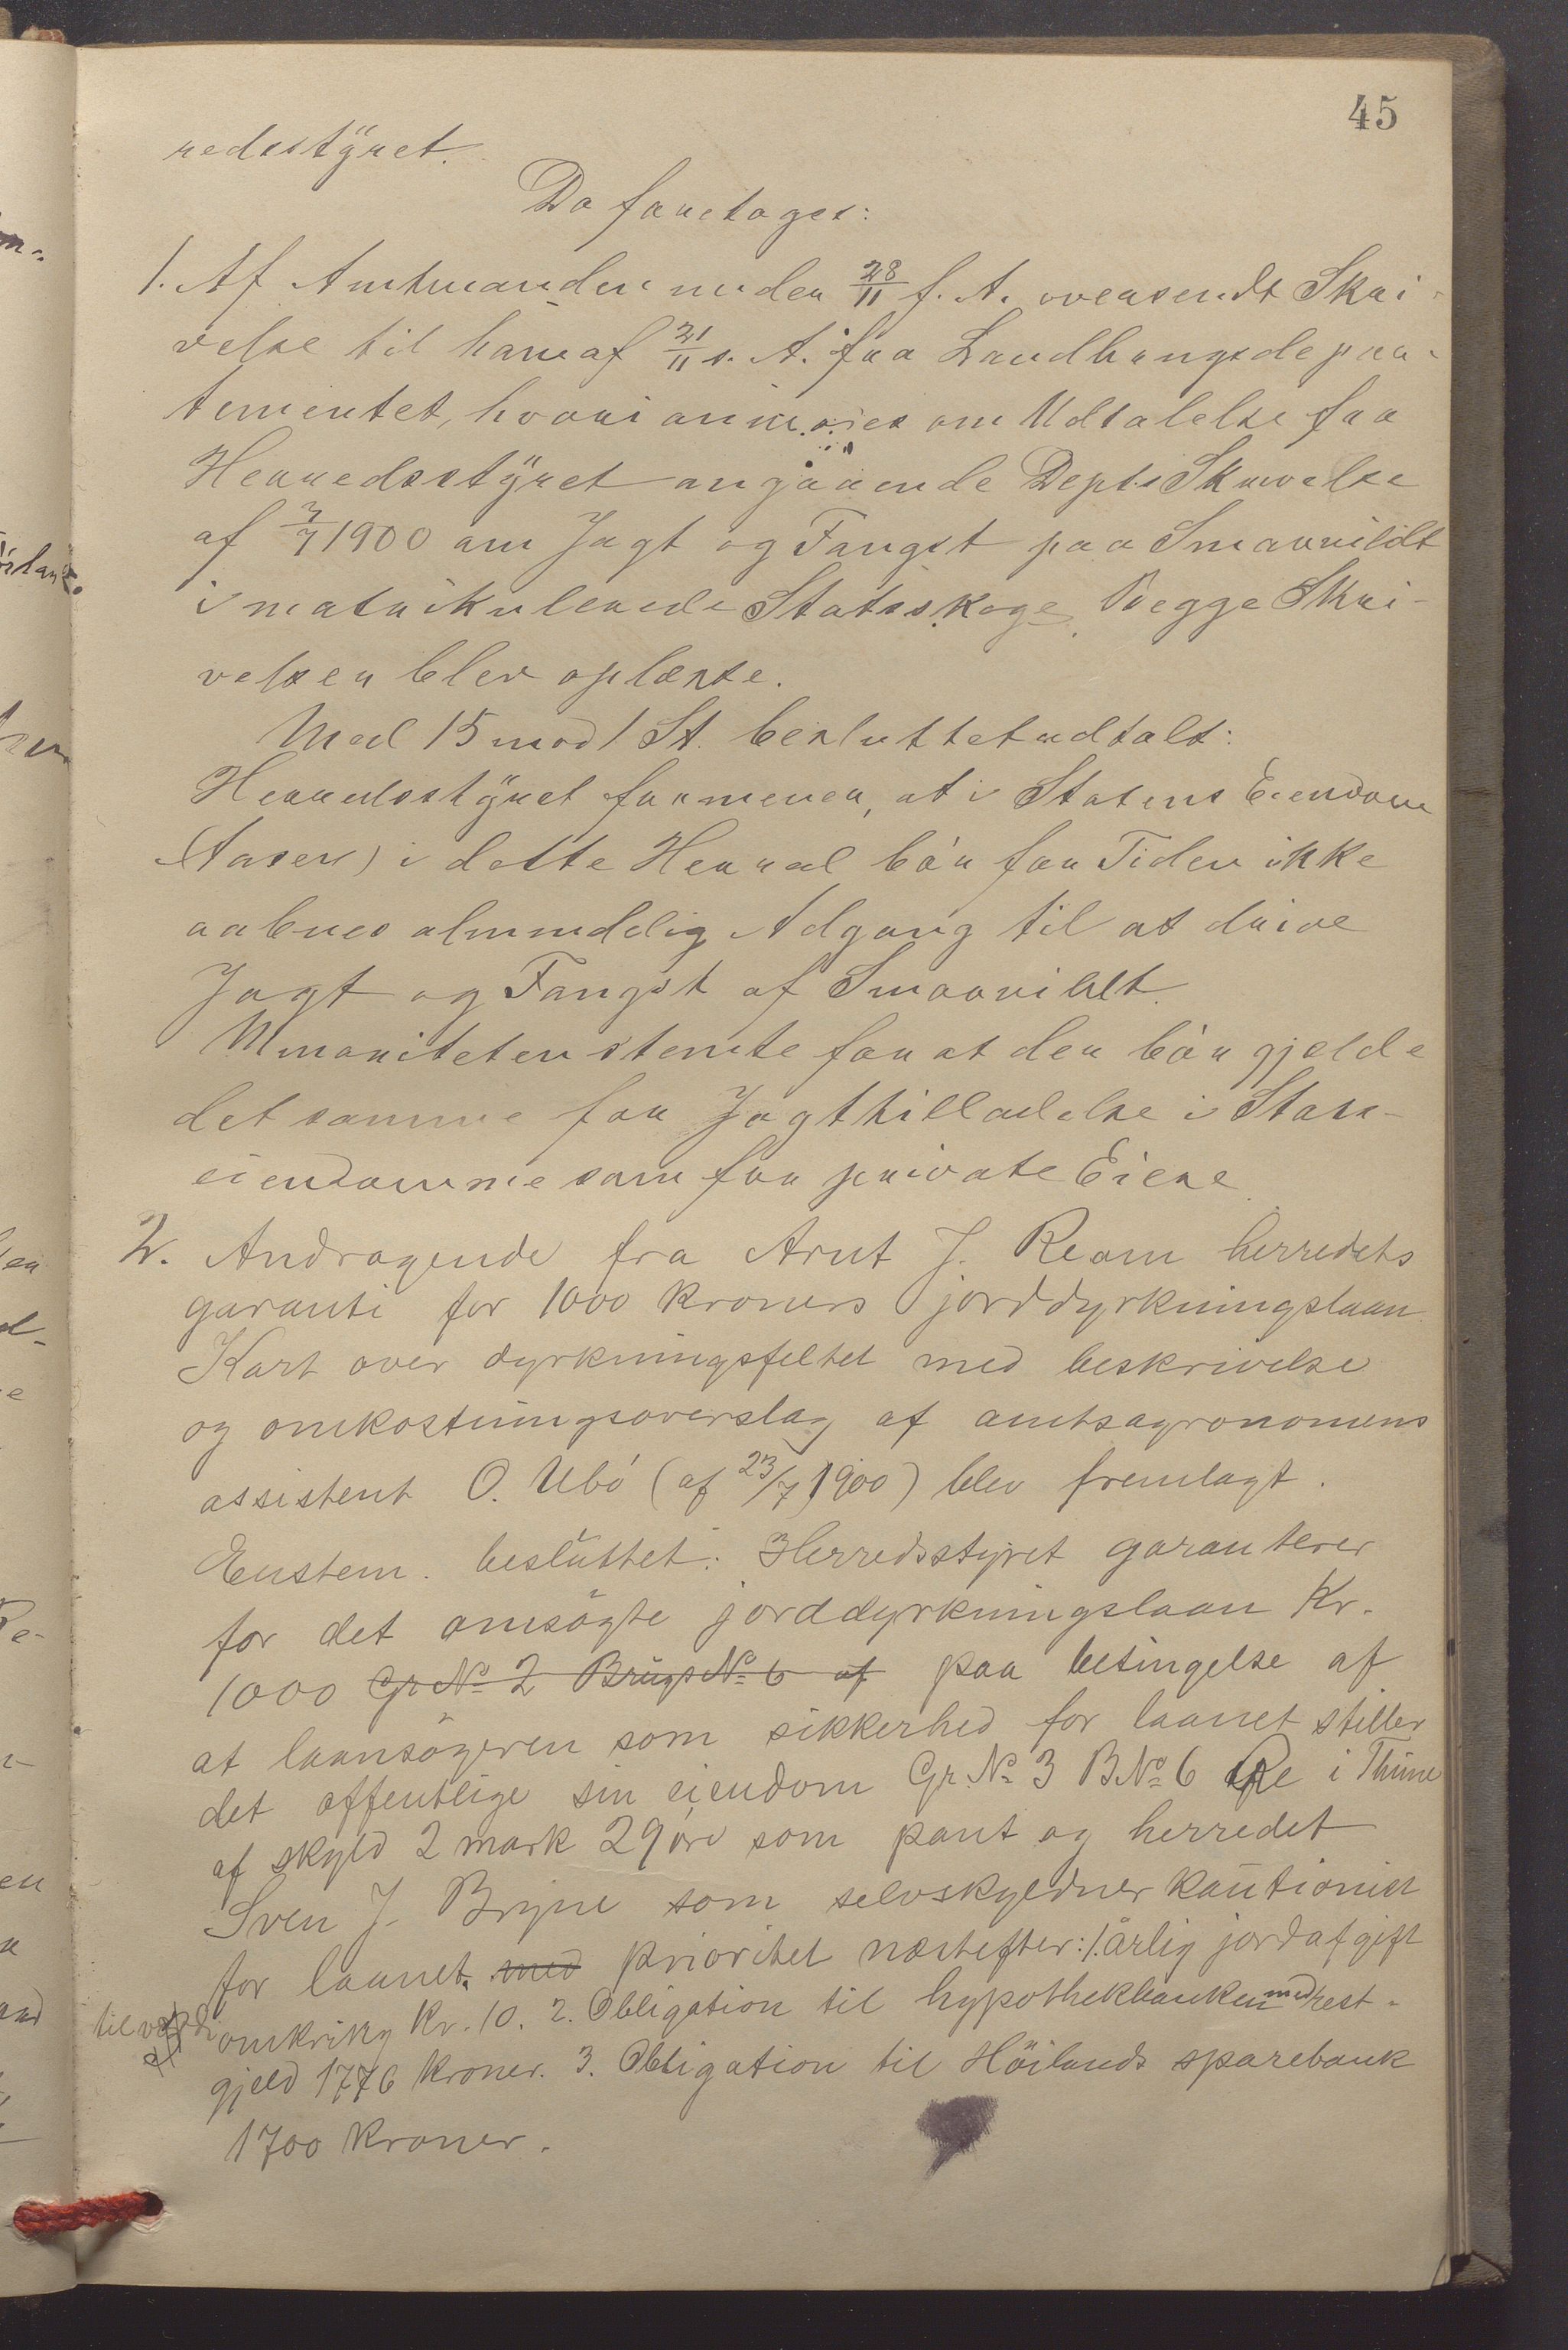 45
redsstÿret.
Da foretoges:
1. Af Amtmanden under 28/11 f. A. oversendt Skri-
velse til ham af 21/11 s. A. fra Landbrugsdepar-
tementet, hvori anmodes om Udtalelse fra
Herredsstÿret angaaende Depts Skrivelse
af 7/7 1900 om Jagt og Fangst paa Smaavildt
i matrikulerede Statsskoge. Begge Skri-
velser blev oplæste.
Med 15 mod 1 St. besluttet udtalt:
Herredsstÿret formener, at i Statens Eiendom
(Aasen) i dette Herred bör for Tiden ikke
aabnes almindelig Adgang til at drive
Jagt og Fangst af Smaavildt.
Minoriteten stemte for at der bör gjelde
det samme for Jagttilladelse i Stats-
eiendomme som for private Eiere.
2. Andragende fra Arnt J. Re om herredets
garanti for 1000 kroners jorddyrkningslaan.
Kart over dyrkningsfeltet med beskrivelse
og omkostningsoverslag af amtsagronomens
assistent O. Ubö (af 23/7 1900) blev fremlagt.
Enstem. besluttet: Herredsstyret garanterer
for det omsögte jorddyrkningslaan Kr.
1000 Gr. No 2 Brugs No 6 af paa betingelse af
at laansögeren som sikkerhed for laanet stiller
det offentlige sin eiendom Gr. No 3 B No 6 Re i Thime
af skyld 2 mark 29 öre som pant og herredet
Sven J. Bryne som selvskyldnerkautionist
for laanet. med prioritet næstefter: 1. årlig jordafgift
til værdi omkring Kr. 10. 2. Obligation til hypothekbanken med rest-
gjeld 1776 kroner. 3. Obligation til Höilands sparebank
1700 kroner.